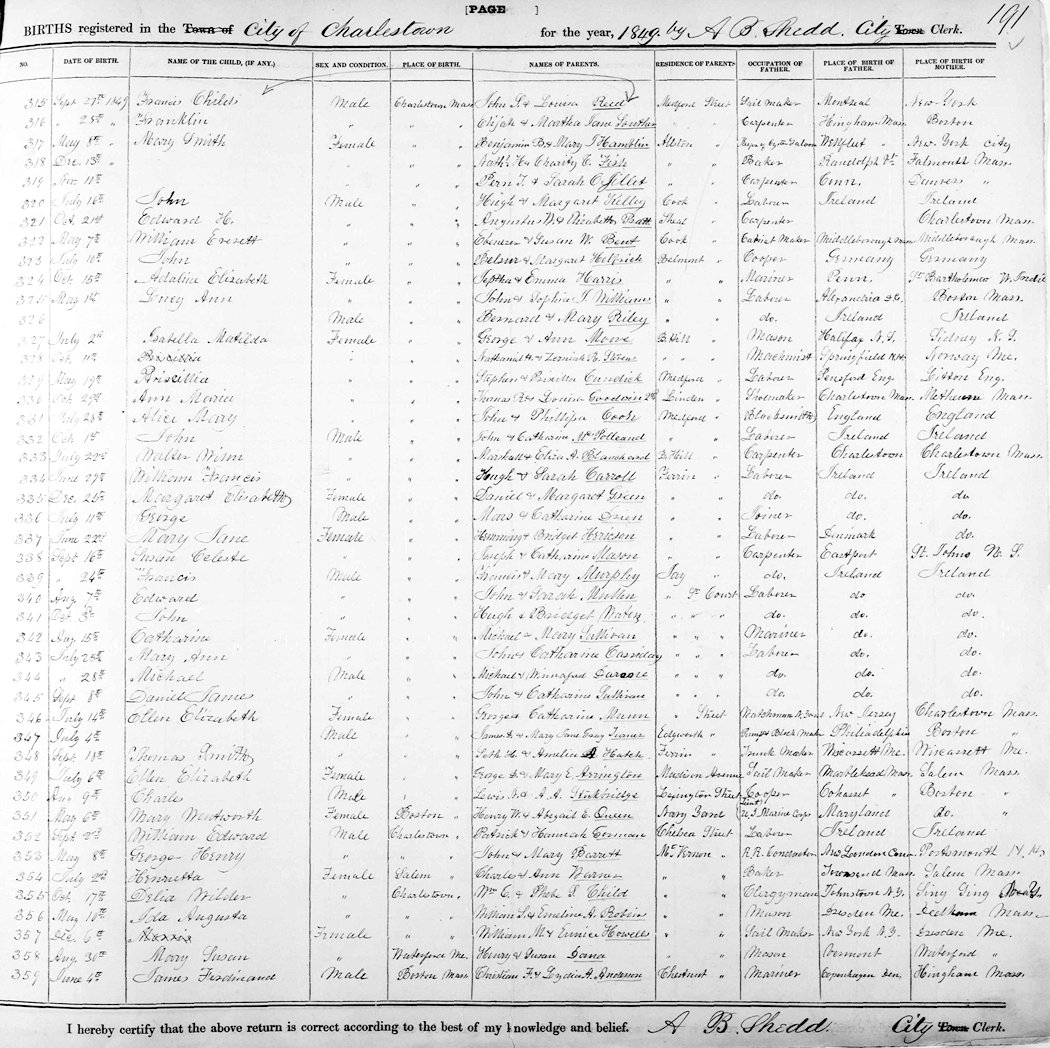 [PAGE ]
191
BIRTHS registered in the Town of City of Charlestown for the year, 1849 by A B. Shedd. City Town Clerk.
NO. DATE OF BIRTH. NAME OF THE CHILD, (IF ANY.) SEX AND CONDITION. PLACE OF BIRTH. NAMES OF PARENTS. RESIDENCE OF PARENTS OCCUPATION OF FATHER. PLACE OF BIRTH OF FATHER. PLACE OF BIRTH OF MOTHER.
315 Sept 27th 1849 Francis Childs Male Charlestown Mass John S. & Louisa Reed Medford Street Sail maker Montreal New York
316 " 25th " Franklin " " " Elijah & Martha Jane " " Carpenter Hingham Mass Boston
317 May 8th " Mary Smith Female " " Benjamin B & Mary T Hamblin Alston " Wellfleet " New York City
318 Dec. 13th " " " " Nathl. H & Charity C. Fish " " Baker Randolph Vt. Falmouth Mass.
319 Nov. 11th " " " Pern T. & Sarah O. Jillet " " Carpenter Conn. Danvers "
320 July 16th John Male " " Hugh & Margaret Kelley Cook " Laborer Ireland Ireland
321 Oct. 21st Edward H. " " " Augustus W. & Elizabeth Pratt " Carpenter Charlestown Mass.
322 May 7th William Everett " " " Ebenezer & Susan W. Bent Cook " Cabinet Maker Middleborough Mass Middleborough Mass
323 July 10th John " " " & Margaret Belmont " Cooper Germany Germany
324 Oct 15th Adaline Elizabeth Female " " Jeptha & Emma Harris " " Mariner Penn. St. Bartholomew W. Indie
325 May 1st Lucy Ann " " " John & Sophia T. Williams " " Laborer Alexandria D.C. Boston Mass.
326 Male " " Bernard & Mary Riley " " do. Ireland Ireland
327 July 2nd Isabella Matilda Female " " George & Ann B Hill " Mason Halifax N.S. Sidney N.S.
328 Oct 11th " " " Nathaniel & Zerniah R. Stevens " " Machinist Springfield N.H. Norway Me.
329 May 19th Priscillia " " " Stephen & Priscilla Cundick Medford " Laborer Pensford Eng. Eng.
330 Oct. 29th Ann Maria " " " Thomas B & Louisa Goodwin 2d Linden " Shoemaker Charlestown Mass. Methuen Mass.
331 July 28th Alice Mary " " " John & Phillipa Cook Medford " Blacksmith England England
332 Oct. 1st John Male " " John & Catharine " " Laborer Ireland Ireland
333 July 22nd Walter Winn " " " Marshall & Eliza A. Blanchard B Hill " Carpenter Charlestown Charlestown Mass.
334 June 27th William Francis " " " Hugh & Sarah Carroll Ferrin " Laborer Ireland Ireland
335 Dec. 26th Margaret Elizabeth Female " " Daniel & Margaret Green " " do. do. do
336 July 11th George Male " " Mars & Catharine " " Joiner do. do.
337 June 22nd Mary Jane Female " " Henning & Bridget Herricson " " Laborer Denmark do.
338 Sept. 16th Susan Celeste " " " Joseph & Catharine Mason " " Carpenter Eastport St. Johns N. S.
339 " 24th Francis Male " " Francis & Mary Murphy Jay " do. Ireland Ireland
340 Aug 7th Edward " " " John & Sarah Mullen " Pl Court Laborer do do.
341 3rd John " " " Hugh & Bridget Waters " " " do. do. do.
342 Aug. 15th Catharine Female " " Michael & Mary Sullivan " " " Mariner do. do.
343 July 25th Mary Ann " " " John & Catharine Cassiday " " " Laborer do. do.
344 " 28th Michael Male " " Michael & Winnafred " " " do. do. do.
345 Sept. 8th Daniel James " " " John & Catharine Sullivan " " " do. do. do.
346 July 14th Ellen Elizabeth Female " " George & Catharine Munn " Street Watchman New Jersey Charlestown Mass.
347 July 4th Male " " James & Mary Jane Gray Turner Edgworth " Pump & Block Maker Philadelphia Boston "
348 Sept. 18th Thomas Smith " " " Seth H. & Amelia A Hatch Ferrin " Trunk Maker Wiscassett Me. Wiscassett Me.
349 July 6th Ellen Elizabeth Female " " George D. & Mary E. Arrington Madison Avenue Sail Maker Marblehead Mass. Salem Mass.
350 Aug 9th Charles Male " " Lewis N. & A. A. Kirkbridge Lexington Street Cooper Cohasset " Boston "
351 May 6th Mary Wentworth Female Boston " Henry W. & Abigail E. Queen Navy Yard (Lieut) U.S. Marine Corps Maryland do. "
352 Sept. 2nd William Edward Male Charlestown. " Patrick & Hannah Gorman Chelsea Street Laborer Ireland Ireland
353 May 8th George Henry " " " John & Mary Barrett Mt. Vernon " R.R. Conductor New London Conn. Portsmouth N.H.
354 July 2nd Henrietta Female Salem " Charles & Ann Warner " Baker Townsend Mass. Salem Mass.
355 Oct. 17th Delia Wilder Charlestown. " Wm. C. & Phebe S. Child " " Clergyman Johnstown N.Y. Sing Sing
356 May 10th Ida Augusta " " " William S. & Emeline A. Robins " Mason Dresden Me. Dedham Mass
357 Dec. 6th Female " " William M. & Eunice Howells " Sail Maker New York N.Y. Dresden Me.
358 Aug. 30th Mary Susan " Waterford Me. Henry & Susan Dana " Mason Vermont Waterford "
359 June 4th James Ferdinand Male Boston Mass. Christian F. & Lydia A. Anderson Chestnut " Mariner Copenhagen Den. Hingham Mass.
I hereby certify that the above return is correct according to the best of my knowledge and belief. A B. Shedd. City Town Clerk.